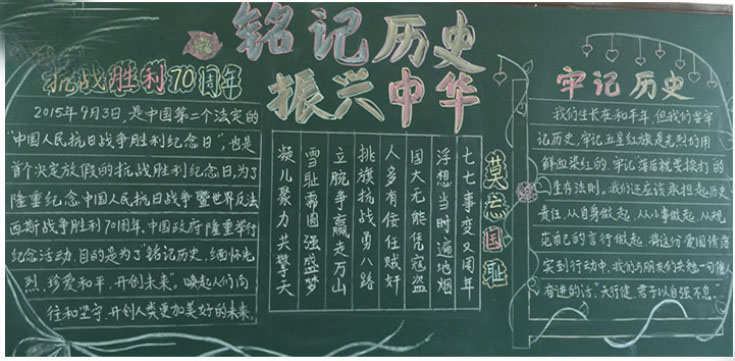 铭记历史
振兴中华
抗战胜利70周年
2015年9月3日,是中国第二个法定的
“中国人民抗日战争胜利纪念日”,也是
首个决定放假的抗战胜利纪念日,为了
隆重纪念中国人民抗日战争暨世界反法
西斯战争胜利70周年,中国政府隆重举行
纪念活动,目的是为了“铭记历史、缅怀先
烈、珍爱和平、开创未来”。唤起人们向
往和坚守,开创人类更加美好的未来。
莫忘国耻
七七事变又周年
浮想当时遍地烟
国大无能凭寇盗
人多有佞任贼奸
挑旗抗战勇八路
立腕争赢走万山
雪耻需图强盛梦
凝儿聚力共擎天
牢记历史
我们生长在和平年,但我们要牢
记历史,牢记五星红旗是先烈们用
鲜血染红的,牢记落后就要挨打的
生存法则,我们还应该承担起历史
责任,从自身做起,从小事做起,从规
范自己的言行做起,将这份爱国情落
实到行动中,我们与朋友们共勉一句催
人奋进的话:“天行健,君子以自强不息。”